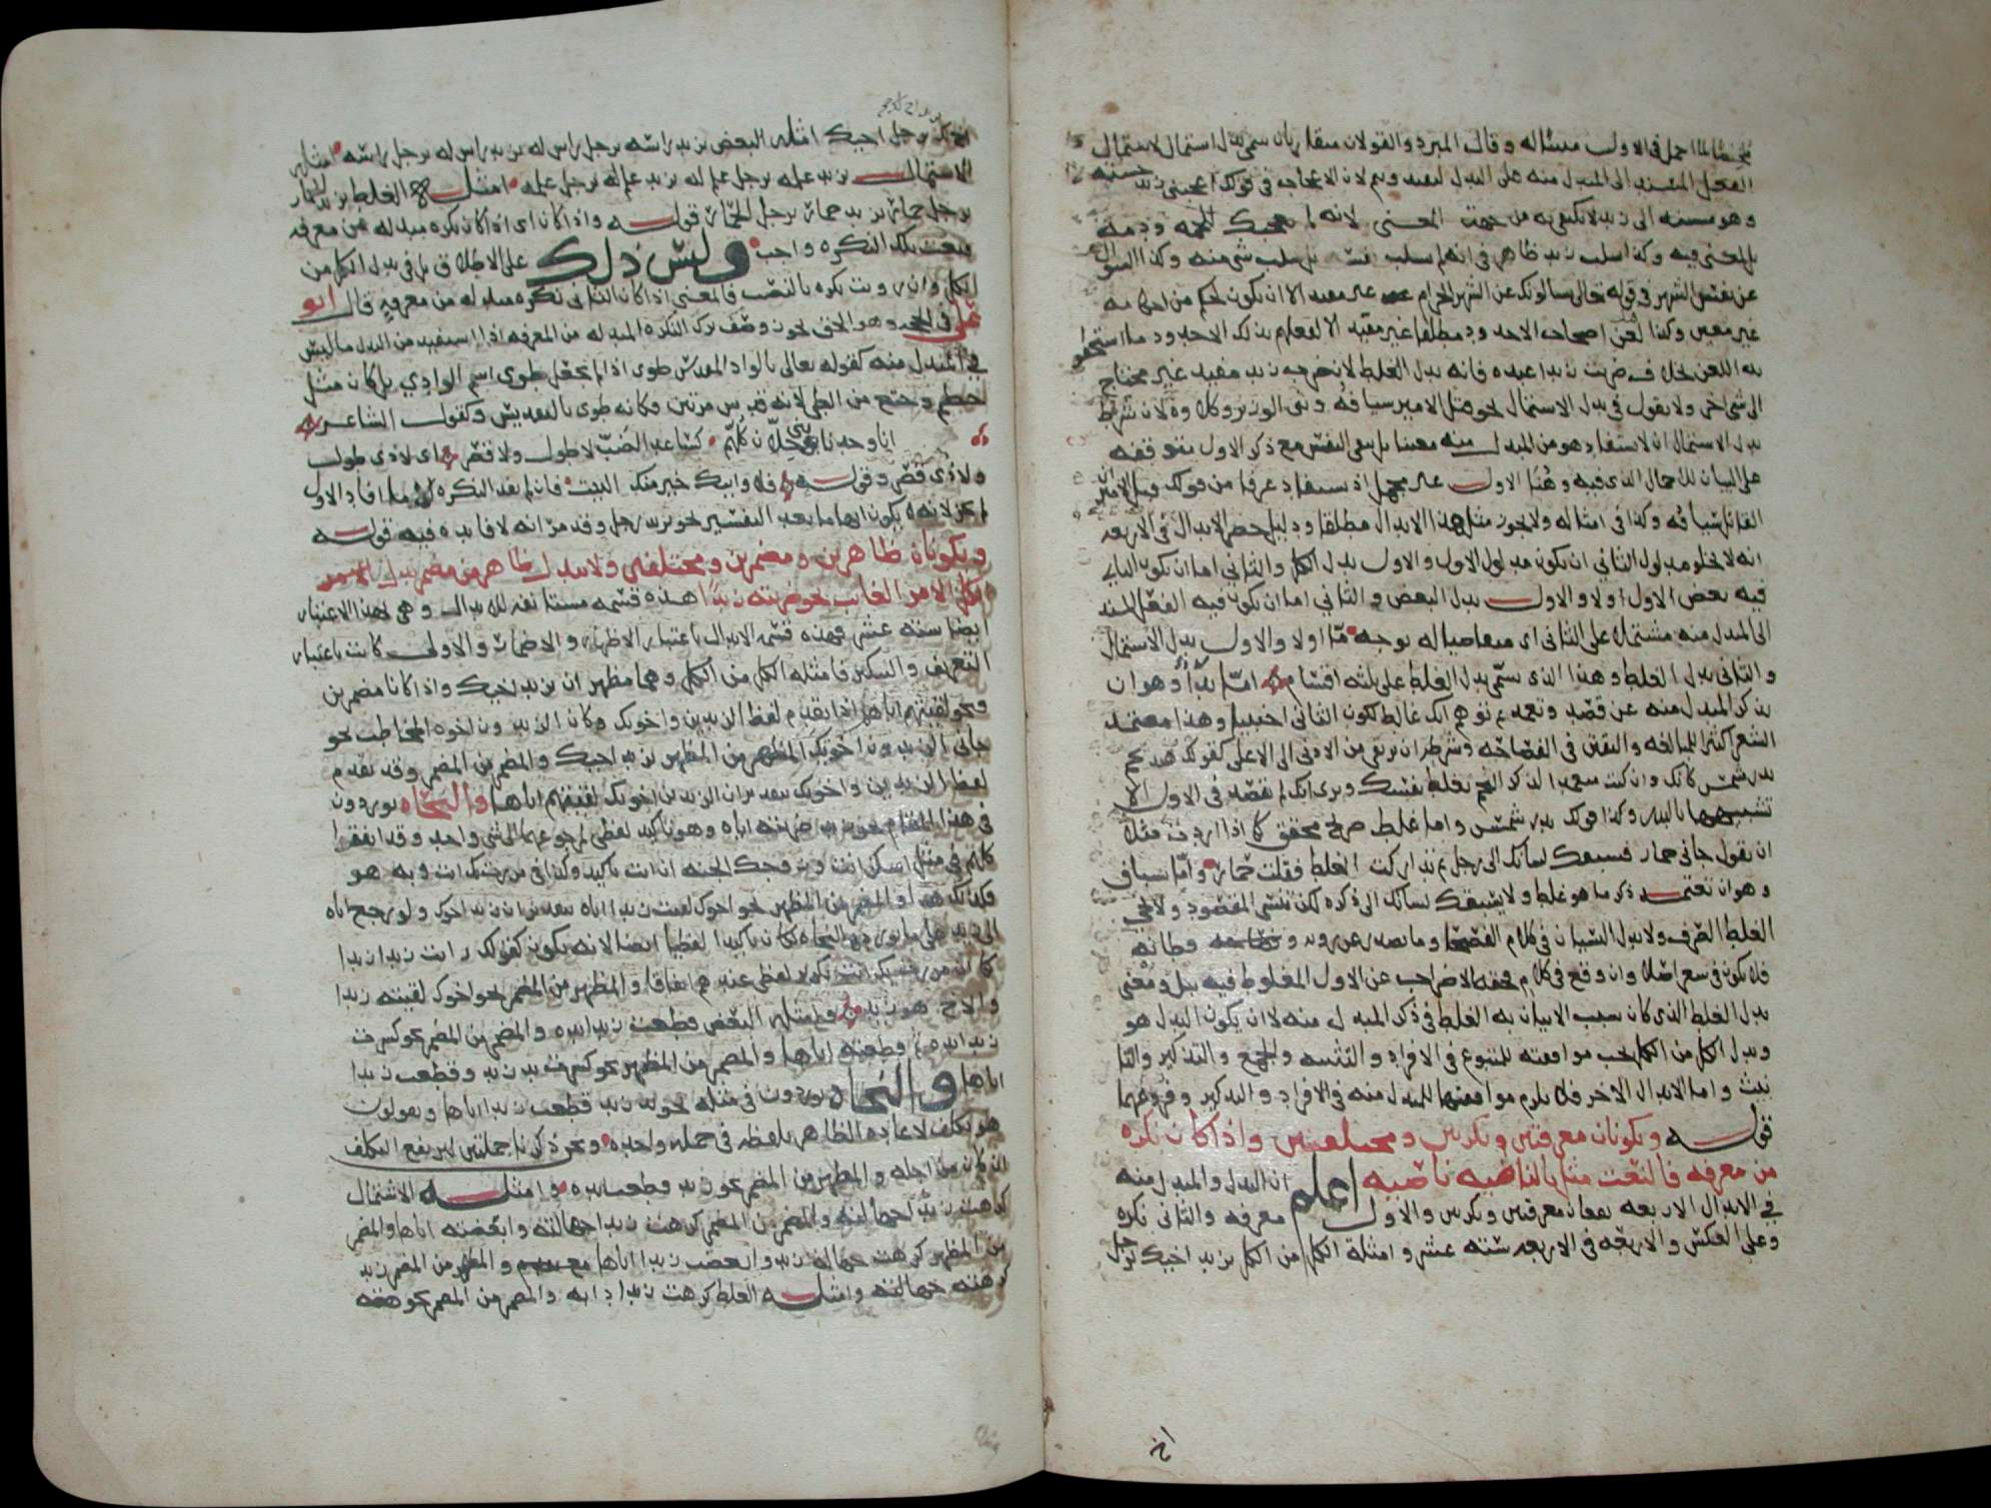 لما اجمل فى الاول مسئاله وقال المبرد والقولان متقاربان سمى بدل اشتمال لاشتمال
الفعل المسند الى المبدل منه على البدل ليفيد ويتم لان الاعجاب فى قولك اعجبنى زيد حسنه
وهو مسند الى زيد لا يكتفى به من جهة المعنى لانه لم يعجبك للحمه ودمه
بل لمعنى فيه وكذا سلب زيد ظاهر فى انه لم يسلب نفسه بل سلب شى منه وكذا السوال
عن نفس الشهر فى قوله تعالى يسالونك عن الشهر الحرام غير مفيد الا ان يكون لحكم من احكامه
غير معين وكذا لعن اصحاب الاخدود مطلقا غير مقيد الا لفعلهم بذلك الاخدود ما استحقوا
به اللعن بخلاف ضربت زيدا عبده فانه بدل الغلط لان ضرب زيد مفيد غير محتاج
الى شى اخر ولا يقول فى بدل الاشتمال نحو قتل الامير سيافه وبنى الوزير وكلاوه لان شرط
بدل الاشتمال ان لا يستفاد هو من المبدل منه معينا بل يبقى النفس مع ذكر الاول متوقفه
على البيان للاجمال الذى فيه وهنا الاول غير مجمل اذ يستفاد عرفا من قولك قتل الامير ان
القاتل سيافه وكذا فى امثاله ولا يجوز مثل هذا الابدال مطلقا ودليل حصر الابدال فى الاربعه
انه لا يخلو مدلول الثانى ان يكون مدلول الاول والاول بدل الكل والثانى اما ان يكون الثانى
فيه بعض الاول اولا والاول بدل البعض والثانى اما ان يكون فيه الفعل المسند
الى المبدل منه مشتملا على الثانى اى متقاضيا له بوجه ما اولا والاول بدل الاشتمال
والثانى بدل الغلط وهذا الذى يسمى بدل الغلط على ثلثه اقسام اما بدا وهو ان
يذكر المبدل منه عن قصد وتعمد ثم توهم انك غالط لكون الثانى اجنبيا وهذا معتمد
الشعرا كثيرا للمبالغه والتفنن فى الفصاحه وشرطه ان يرتقى من الادنى الى الاعلى كقولك هند نجم
بدر شمس كانك وان كنت متعمدا لذكر النجم تغلط نفسك وترى انك لم تقصد فى الاول الا
تشبيهها بالبدر وكذا قولك بدر شمس واما غلط صريح محقق كما اذا اردت مثلا
ان تقول جانى حمار فسبقك لسانك الى رجل ثم تداركت الغلط فقلت حمار واما نسيان
وهو ان تعتمد ذكر ما هو غلط ولا يسبقك لسانك الى ذكره لكن تنسى المقصود ولا يجى
الغلط الصرف ولا بدل النسيان فى كلام الفصحا وما يصدر عن رويه وفطانه
فلا يكون فى شعر اصلا وان وقع فى كلام فحقه الاضراب عن الاول المغلوط فيه ببل ومعنى
بدل الغلط الذى كان سبب الاتيان به الغلط فى ذكر المبدل منه لا ان يكون البدل هو
وبدل الكل من الكل يجب موافقته للمتبوع فى الافراد والتثنيه والجمع والتذكير والتا
نيث واما الابدال الاخر فلا يلزم موافقتها للمبدل منه فى الافراد والتذكير وفروعهما
قوله ويكونان معرفتين ونكرتين ومختلفتين واذا كان نكره
من معرفه فالنعت مثل بالناصيه ناصيه اعلم ان البدل والمبدل منه
فى الابدال الاربعه يقعان معرفتين ونكرتين والاول معرفه والثانى نكره
وعلى العكس والاربعه فى الاربعه سته عشر وامثلة الكل من الكل بزيد اخيك برجل
اخ
اخ لك برجل اخيك امثله البعض بزيد راسه برجل راس له بزيد راس له برجل راسه امثله
الاشتمال بزيد علمه برجل علم له بزيد علم له برجل علمه امثله الغلط بزيد الحمار
برجل حمار بزيد حمار برجل الحمار قوله واذا كان اى اذا كان نكره مبدله من معرفه
فنعت تلك النكره واجب وليس ذلك على الاطلاق بل فى بدل الكل من
الكل وان رويت نكره بالنصب فالمعنى اذا كان الثانى نكره مبدله من معرفه قال ابو
على فى الحجه وهو الحق يجوز وصف ترك النكره المبدله من المعرفه اذا استفيد من البدل ما ليس
فى المبدل منه كقوله تعالى بالواد المقدس طوى اذا لم يجعل طوى اسم الوادى بل كان مثل
حطم وختع من الطى لانه قدس مرتين فكانه طوى بالتقديس وكقول الشاعر
انا وجدنا بنى جلان كلهم كساعد الضب لا طول ولا قصر اى لا ذى طول
ولا ذى قصر وقوله فلا وابيك خير منك البيت فان لم يفد النكره الا ما افاد الاول
لم يجز لانه يكون ابهاما بعد التفسير نحو بزيد رجل وقد مر انه لا فايده فيه قوله
ويكونان ظاهرين ومضمرين ومختلفين ولا يبدل ظاهر من مضمر بدل
الكل الا من الغايب نحو ضربته زيدا هذه قسمه مستانفه للابدال وهى بهذا الاعتبار
ايضا سته عشر فهذه قسمه الابدال باعتبار الاظهار والاضمار والاولى كانت باعتبار
التعريف والتنكير فامثله الكل من الكل وهما مظهران بزيد اخيك واذا كانا مضمرين
نحو لقيتهم اياهم اذا تقدم لفظ الزيدين واخوتك وكان الزيدون اخوه المخاطب نحو
جانى الزيدون اخوتك المظهر من المظهر بزيد اخيك والمضمر من المضمر وقد تقدم
لفظ الزيدين واخوتك بتقدير ان الزيدين اخوتك لقيتهم اياهما والنحاه يوردون
فى هذا المقام نحو زيد ضربته اياه وهو تاكيد لفظى لرجوعهما الى شى واحد وقد اتفقوا
كلهم فى مثل اسكن انت وزوجك الجنه ان انت تاكيد وكذا فى مررت بك انت وبه هو
وكذلك هذا والمضمر من المظهر نحو اخوك لقيت زيدا اياه بتقدير ان زيدا اخوك ولو رجع اياه
الى زيد على ما يورده النحاه لكان تاكيدا لفظيا ايضا لانه يكون كقولك رايت زيدا زيدا
كما ان مررت بك انت تكرير لفظى عندهم اتفاقا والمظهر من المضمر نحو اخوك لقيته زيدا
والاخ هو زيد وامثله البعض قطعت زيدا يده والمضمر من المضمر نحو كسرت
زيدا يده وقطعته اياها والمضمر من المظهر نحو كسرت يد زيد وقطعت زيدا
اياها والنحاه يوردون فى مثله نحو يد زيد قطعت زيدا اياها ويقولون
هو تكلف لاعاده الظاهر بلفظه فى جمله واحده ونحن ذكرنا جملتين ليرتفع التكلف
ان كان من اجله والمظهر من المضمر نحو زيد قطعته يده وامثله الاشتمال
كرهت زيدا جهالته والمضمر من المضمر كرهت زيدا جهالته وابغضته اياها والمضمر
من المظهر كرهت جهالة زيد وابغضت زيدا اياها والمظهر من المضمر زيد
كرهته جهالته وامثله الغلط كرهت زيدا دابه والمضمر من المضمر نحو